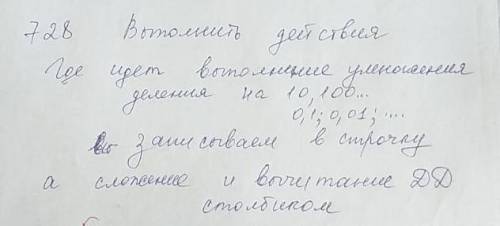 728 Выполнить действия
Где идет выполнение умножения
деления на 10,100...
0,1; 0,01; ....
вы записываем в строчку
а сложение и вычитание ДД
столбиком